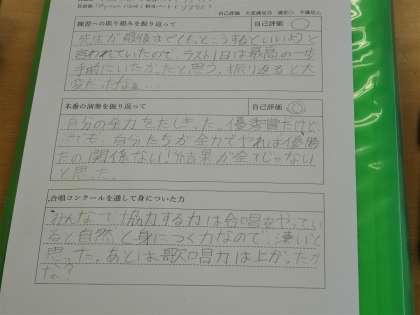 自己評価 大変満足◎ 満足○ 不満足△
練習への取り組みを振り返って 自己評価
先生が最後までもっとこうするといいよと
言われていたので、ラスト1日は最高の一歩
手前にいたかったと思う。振り返ると大
本番の演奏を振り返って 自己評価
自分の全力をだしきった。優秀賞だけど
でも、自分たちが全力でやれば優勝
だの関係ない!結果が全てじゃない
と思った。
合唱コンクールを通して身についた力
みんなで協力する力は合唱をやってい
ると自然と身につく力なので、凄いと
思った。あとは歌唱力は上がったか
な?